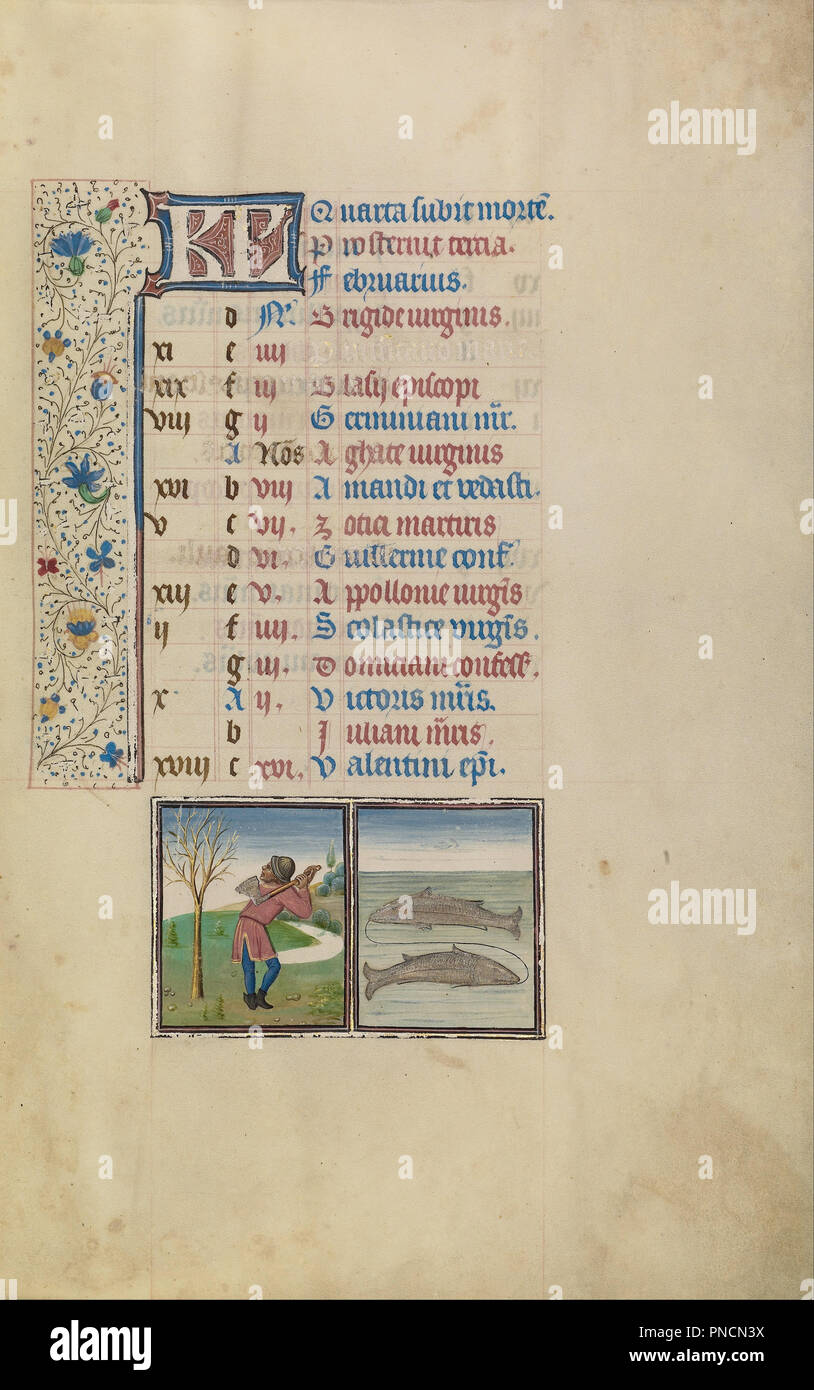 KL Quarta subit mortē.
Prosternit tercia.
Februarius.
d N̄. Brigide virginis.
xi e iiij
xix f iij Blasij episcopi
viij g ij Geminiani m̄r.
A Nōs Aghate virginis
xvi b viij Amandi et vedasti.
v c vij. Zotici martiris
d vi. Guillerme conf̄.
xiij e v. Appollonie virgīs
ij f iiij. Scolastice virgīs.
g iij. Domiciani confess̄.
x A ij. Victoris m̄ris.
b Juliani m̄ris.
xviij c xvi. Valentini ep̄i.
a alamy
alamy
Image ID: PNCN3X
www.alamy.com